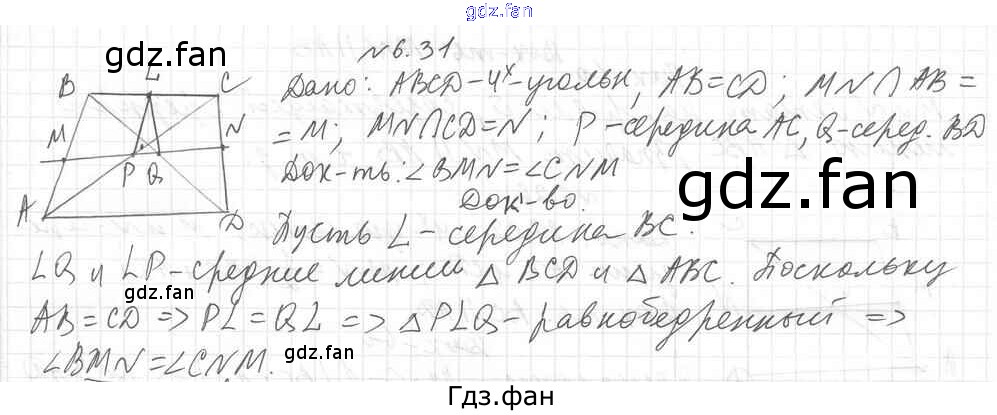 gdz.fan
gdz.fan
№6.31
B L C
M N
P Q
A D
Дано: ABCD-4ˣ-угольн, AB=CD; MN∩AB=
=M; MN∩CD=N; P-середина AC, Q-серед. BD
Док-ть: ∠BMN=∠CNM
gdz.fan
Док-во.
Пусть L-середина BC.
LQ и LP-средние линии △ BCD и △ ABC. Поскольку
gdz.fan
AB=CD => PL=QL => △PLQ-равнобедренный =>
∠BMN=∠CNM.
gdz.fan
Гдз.фан